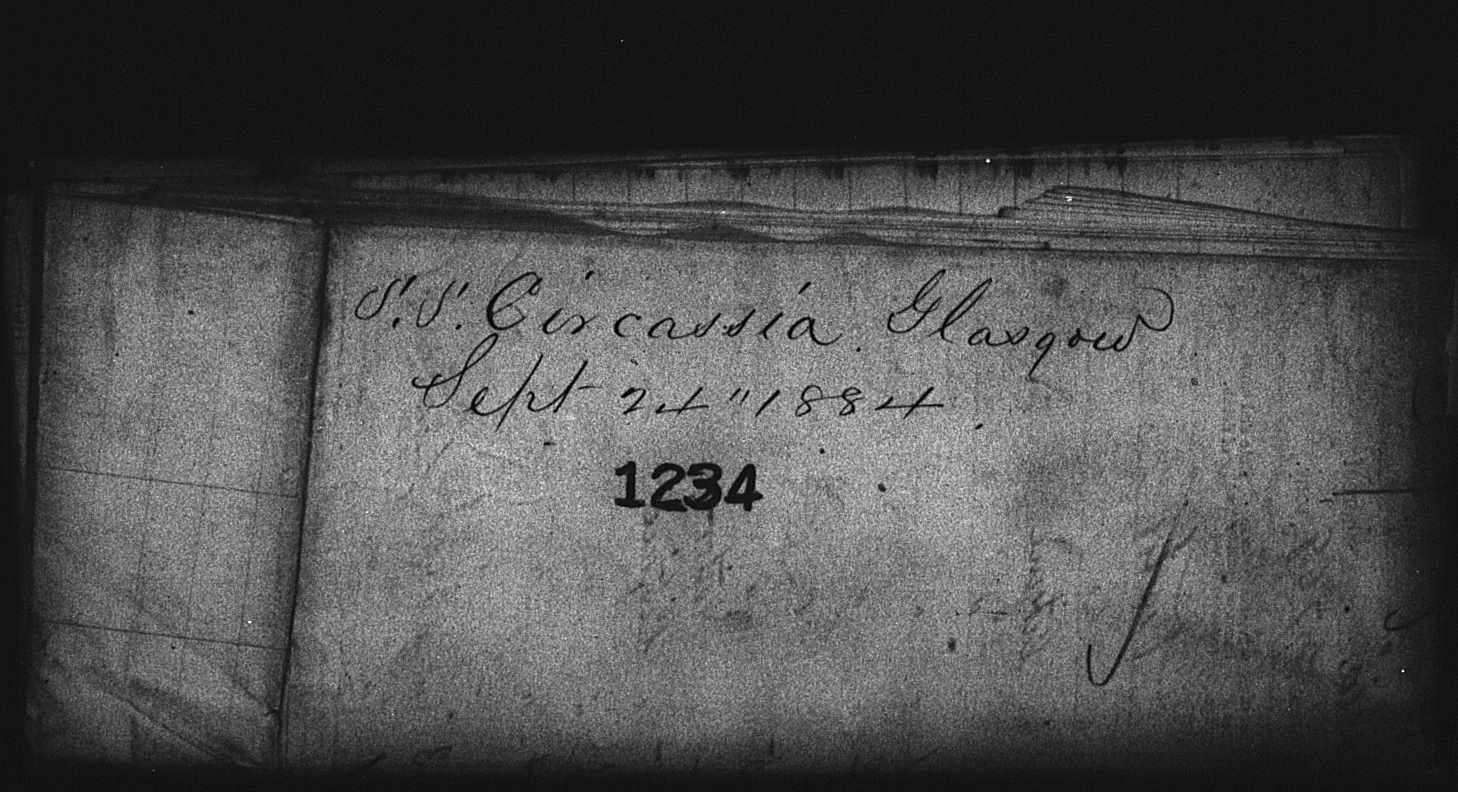 S.S. Circassia. Glasgow
Sept 24" 1884.
1234